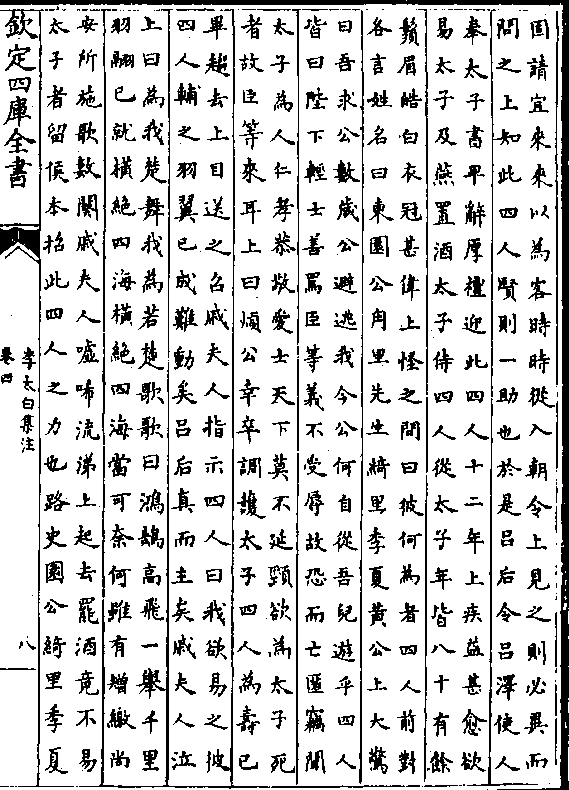 固請宜來來以為客時時從入朝令上見之則必異而
問之上知此四人賢則一助也於是呂后令呂澤使人
奉太子書卑辭厚禮迎此四人十二年上疾益甚愈欲
易太子及燕置酒太子侍四人從太子年皆八十有餘
鬚眉皓白衣冠甚偉上怪之問曰彼何為者四人前對
各言姓名曰東園公角里先生綺里季夏黃公上大驚
曰吾求公數歲公避逃我今公何自從吾兒遊乎四人
皆曰陛下輕士善罵臣等義不受辱故恐而亡匿竊聞
太子為人仁孝恭敬愛士天下莫不延頸欲為太子死
者故臣等來耳上曰煩公幸卒調護太子四人為壽已
畢趨去上目送之召戚夫人指示四人曰我欲易之彼
四人輔之羽翼已成難動矣呂后真而主矣戚夫人泣
上曰為我楚舞我為若楚歌歌曰鴻鵠高飛一舉千里
羽翮已就橫絶四海橫絶四海當可奈何雖有矰繳尚
安所施歌數闋戚夫人噓唏流涕上起去罷酒竟不易
太子者留侯本招此四人之力也路史園公綺里季夏
欽定四庫全書
李太白集注
卷四
八